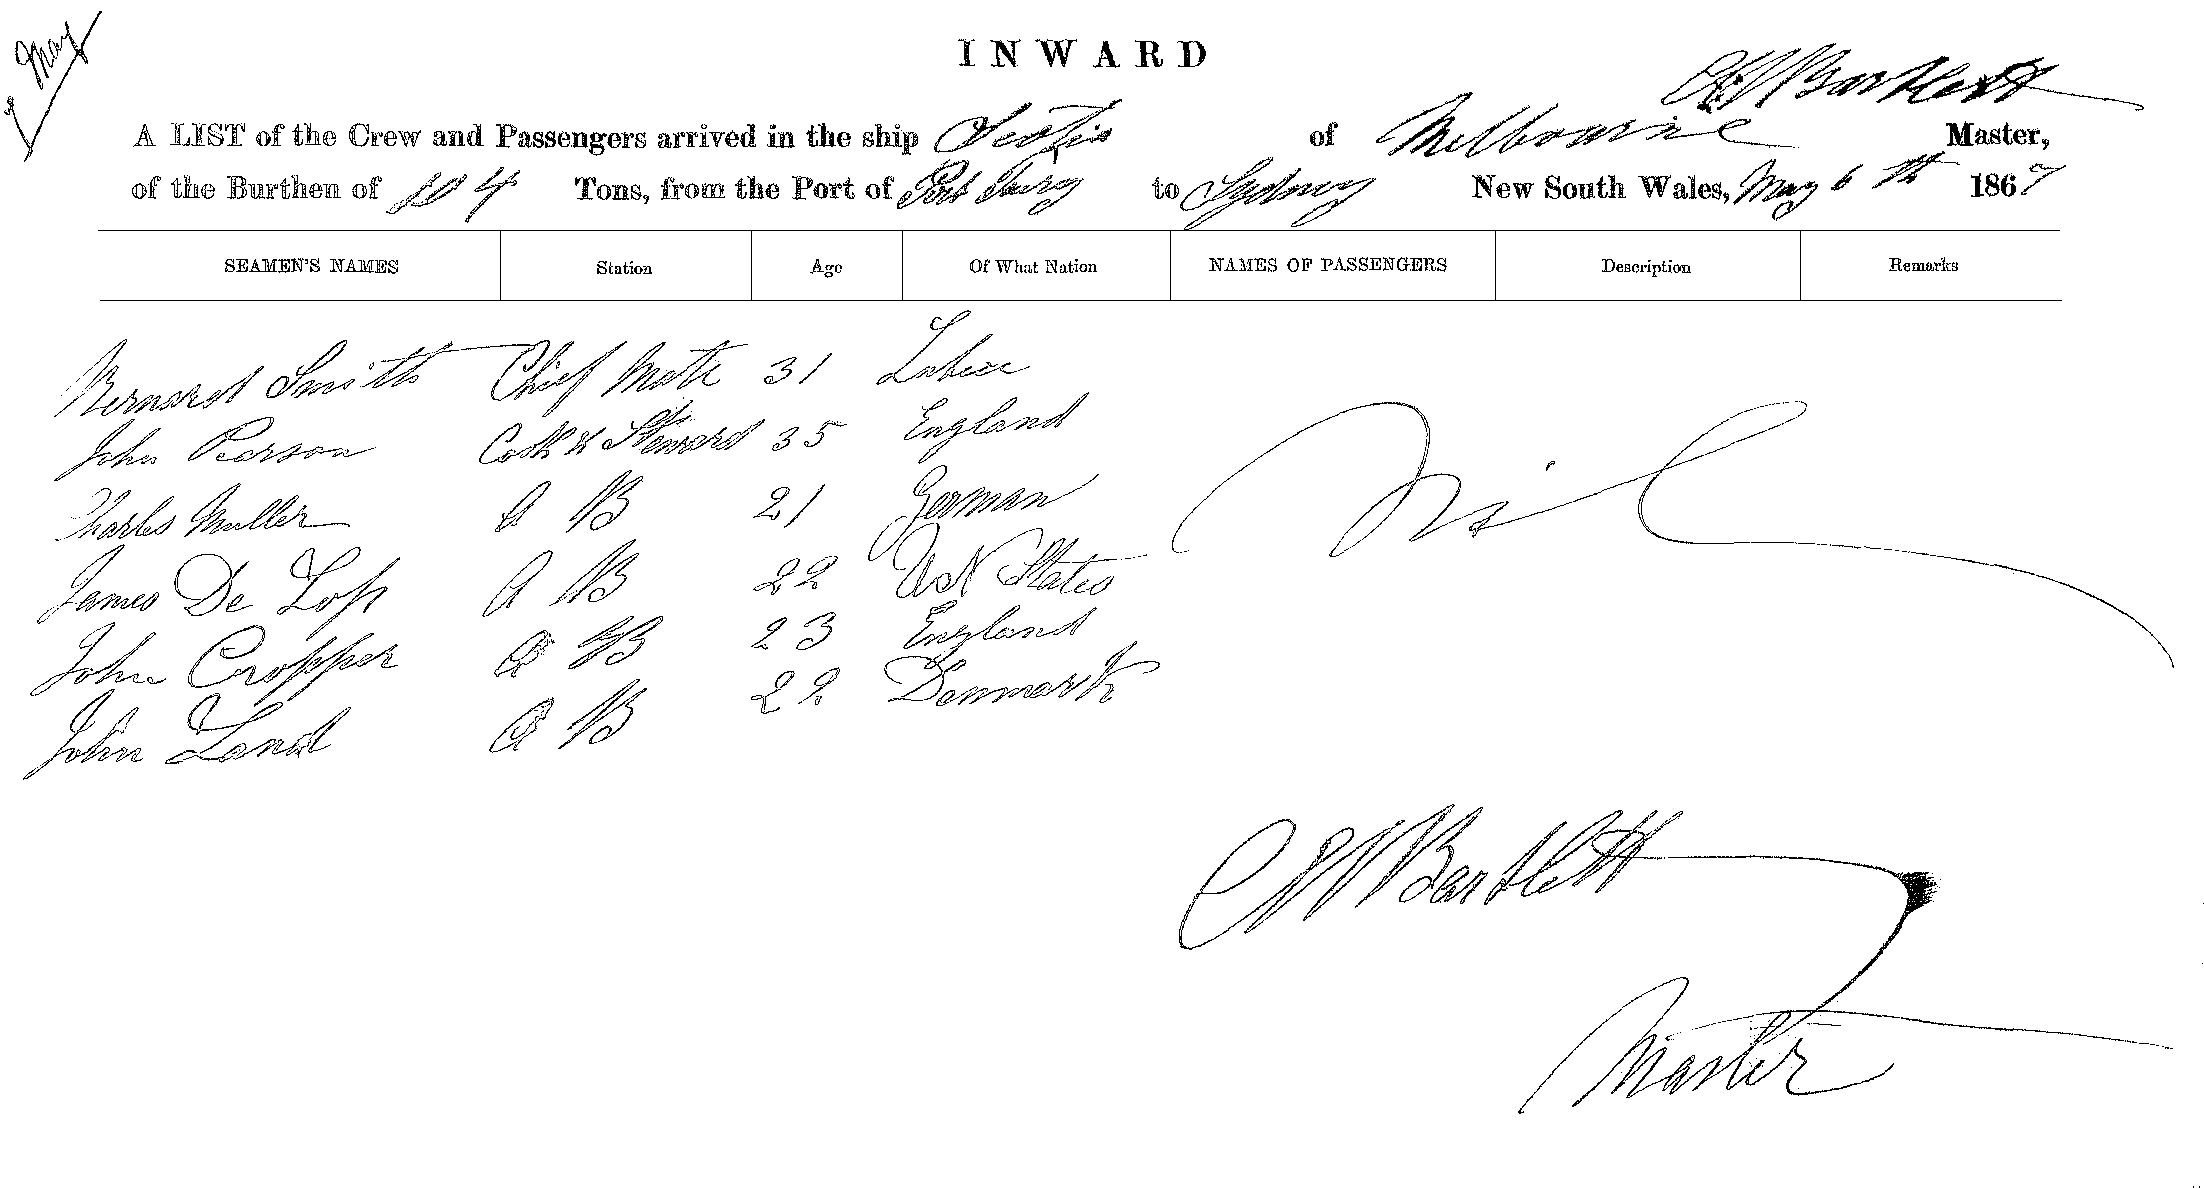 May
INWARD
C W Bartlett
A LIST of the Crew and Passengers arrived in the ship Scotia of Melbourne Master,
of the Burthen of 104 Tons, from the Port of Port to Sydney New South Wales, May 6th 1867
SEAMEN'S NAMES Station Age Of What Nation NAMES OF PASSENGERS Description Remarks
Bernard Smith Chief Mate 31 Lubec
John Pearson Cook & Steward 35 England
Charles Muller A B 21 German
Nil
James De Loss A B 22 Ud States
John Cropper A B 23 England
John Land A B 22 Denmark
C W Bartlett
Master